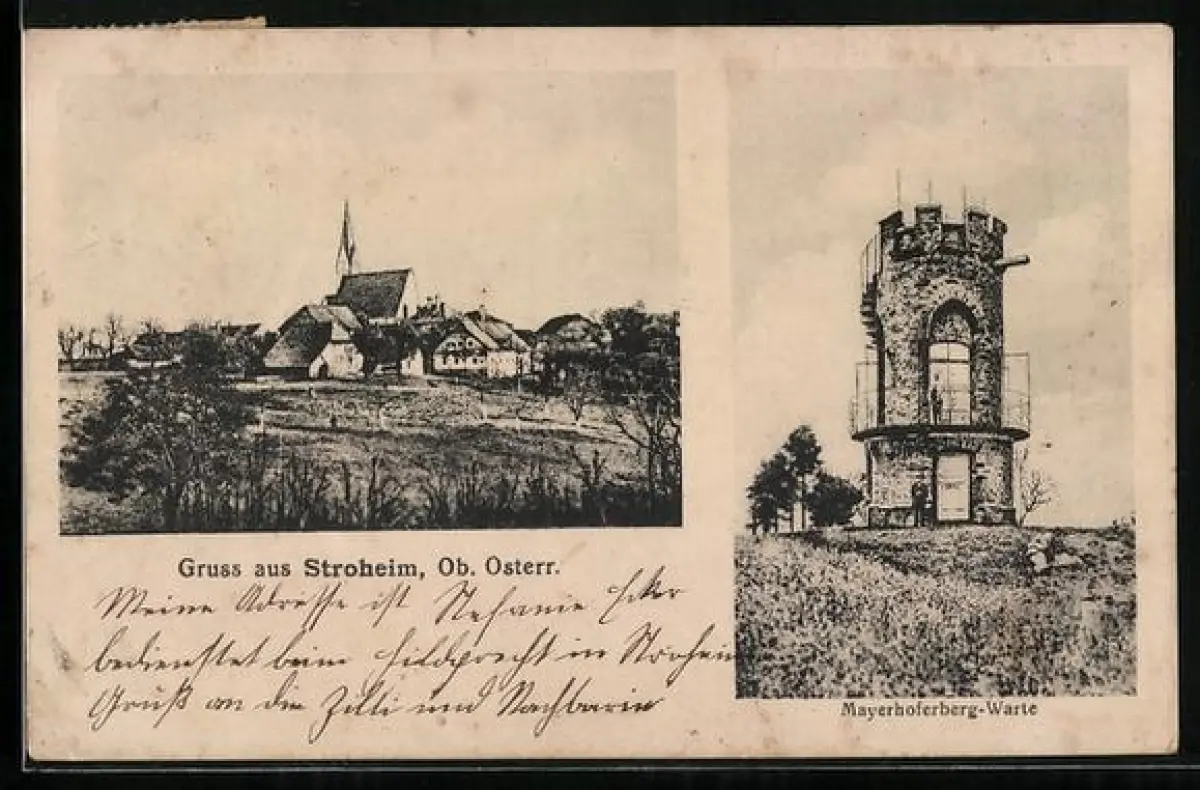 Gruss aus Stroheim, Ob. Osterr.
Meine Adresse ist Stefanie Ecker
bedienstet beim in Stroheim
Gruß an die Zilli und Nachbarin
Mayerhoferberg-Warte